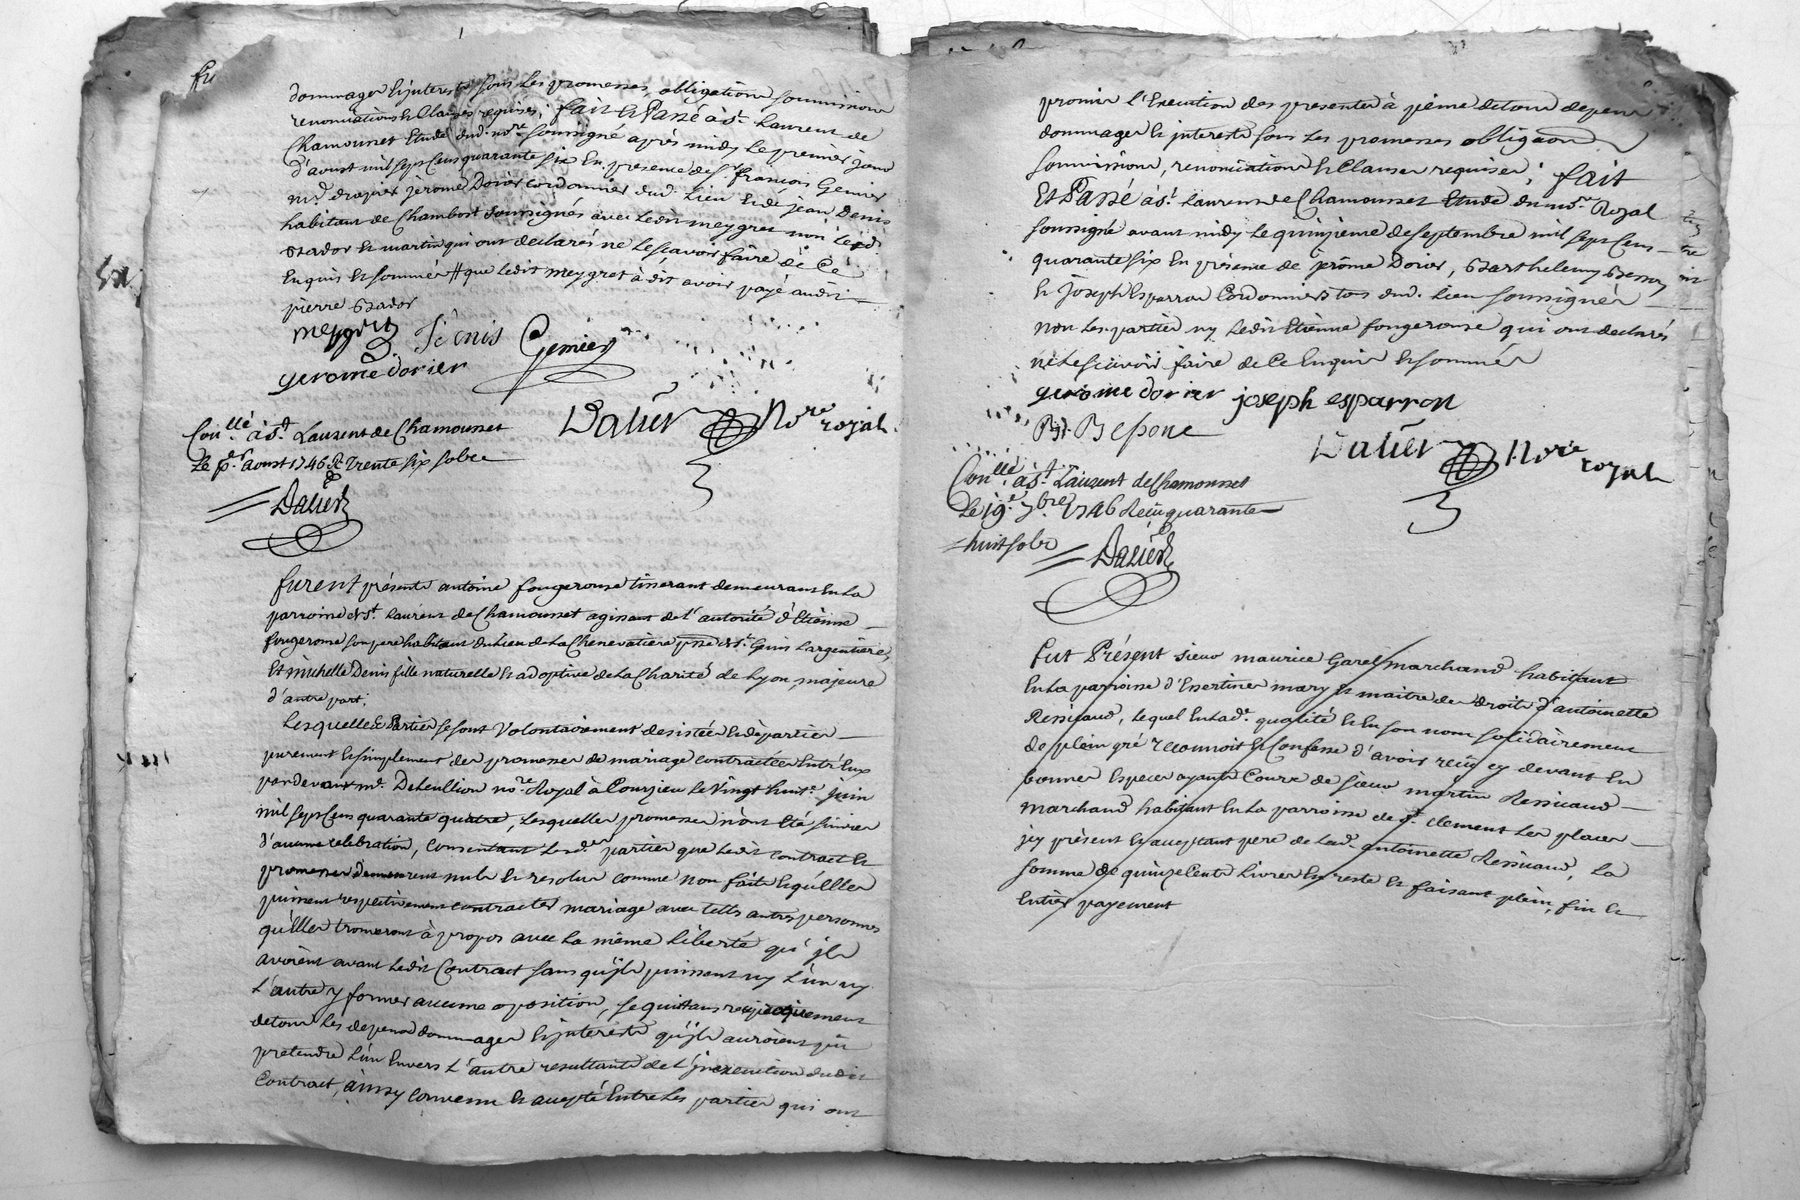 dommages & jnterets sous les promesses, obligations soumissions
renonciations & Clauses requises, fait & Passé à St. Laurent de
Chamousset Etude dud. nore. soussigné après midy le premier jour
d'aoust mil sept Cens quarante six En présence de Sr. françois Gemier
md. drapier jérome Dorier cordonnier dud. Lieu & de jean Denis
habitant de Chambost soussignés avec Ledit meygret non Lesd.
Bador & martin qui ont declarés ne le sçavoir faire de Ce
Enquis & sommés # que ledit meygret à dit avoir payé audit
pierre Bador
meygret J. Denis Gemier
gerome dorier
Dalier Nore royal
Conllé. à St. Laurent de Chamousset
Le pr. aoust 1746 R. trente six sols
Dalier
furent présents antoine fougerouse tisserant demeurant En La
parroisse de St. Laurent de Chamousset agissant de L'autorité d'Etienne
fougerouse son pere habitant du Lieu de La Chenevatiere psse de St. Genis Largentiere,
Et michelle Denis fille naturelle & adoptive de La Charité de Lyon, majeure
d'autre part;
Lesquelles Parties se sont Volontairement desistées & départies
purement & simplement des promesses de mariage contractées Entr'Eux
pardevant me. Deheullion nore. Royal à Courzieu le Vingt huite. juin
mil sept Cens quarante quatre, Lesquelles promesses n'ont Eté suivies
d'aucune celebration, consentant Lesd. parties que Ledit contract &
promesses demeurent nuls & resolus comme non faits & qu'Elles
puissent respectivement contracter mariage avec telles autres personnes
qu'Elles trouveront à propos avec La même Liberté qu'jls
avoient avant Ledit Contract sans qu'jls puissent ny L'un ny
L'autre y former aucune oposition, se quittant respectivement
de tous Les depens dommages & jnterets qu'jls auroient pû
pretendre L'un Envers L'autre resultants de L'jnexecution dudit
Contract, ainsy convenu & accepté Entre Les parties qui ont
promis l'Execution des presentes à peine de tous depens
dommages & jnterets sous Les promesses obligaons
soumissions, renonciations & Clauses requises; fait
Et Passé à St. Laurent de Chamousset Etude du nore. Royal
soussigné avant midy Le quinzieme de septembre mil sept Cens
quarante six En présence de jerôme Dorier, Barthelemy Besson
& joseph Esparron Cordonniers tous dud. Lieu soussignés
non Les parties ny Ledit Etienne fougerouse qui ont declarés
ne Le sçavoir faire de Ce Enquis & sommés
gerome dorier joseph esparron
Bt. Besone
Dalier Nore royal
Conllé. à St. Laurent de Chamousset
Le 19e. 7bre 1746 Reçu quarante
huit sols
Dalier
fut Présent sieur maurice Garel marchand habitant
En La parroisse d'Essertines mary & maitre des droits d'antoinette
Ressicaud, Lequel En lade. qualité & En son nom solidairement
de plein gré reconnoit & Confesse d'avoir reçu cy devant En
bonnes Especes ayants Cours de sieur martin Ressicaud
marchand habitant En La parroisse de St. Clement Les places
jcy présent & acceptant pere de Lad. antoinette Ressicaud, La
somme de quinze Cents Livres En reste & faisant plein, fin &
Entier payement